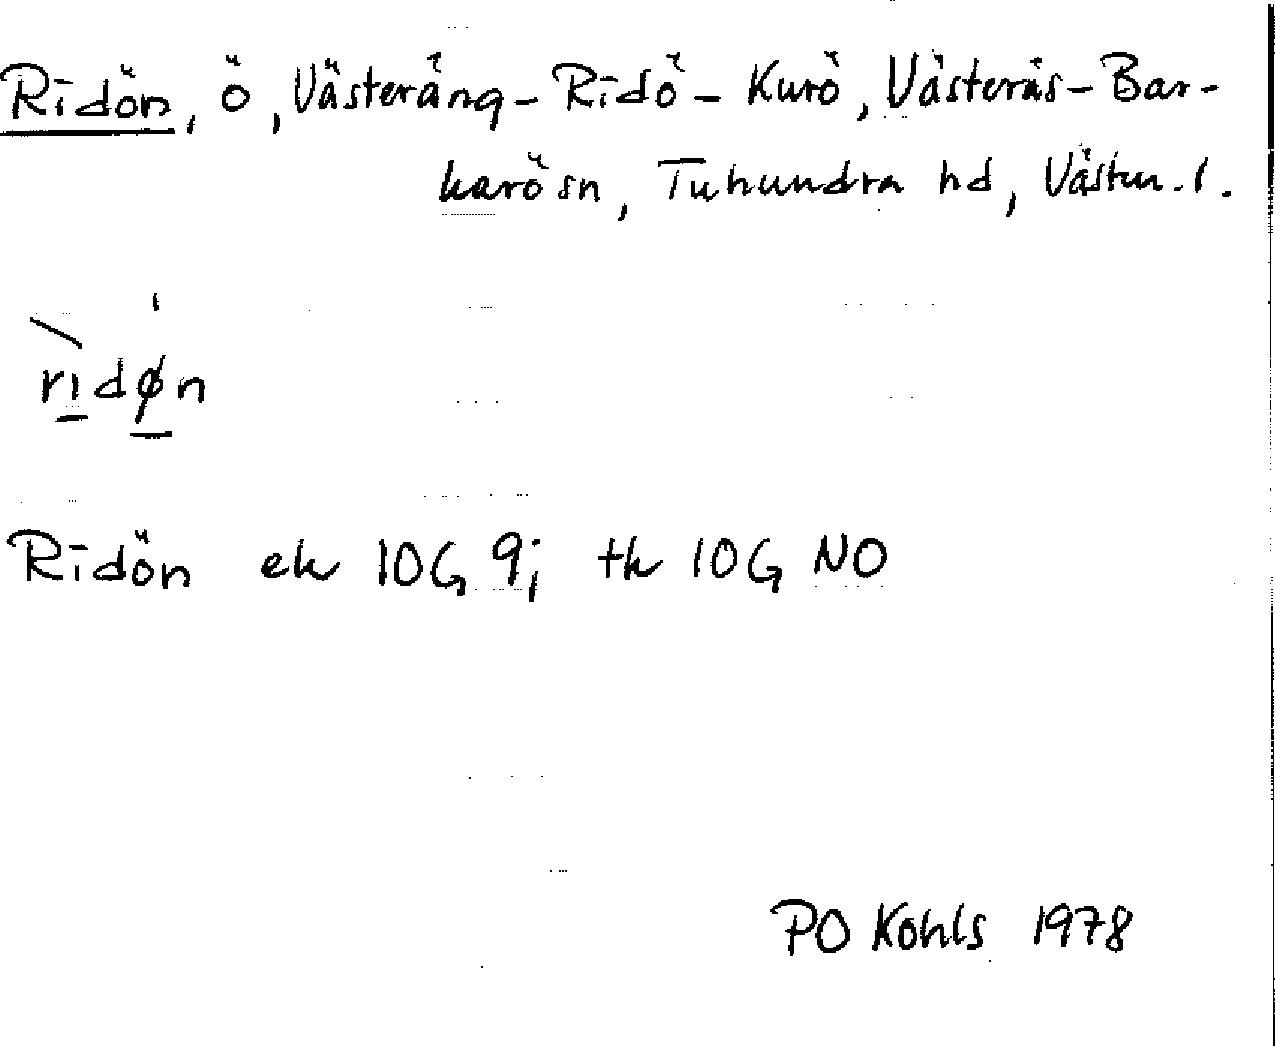 Ridön, ö, Västeräng - Ridö - Kurö, Västerås-Bar-
karö sn, Tuhundra hd, Västm. l.
ridøn
Ridön ek 10G 9j tk 10G NO
PO Kohls 1978